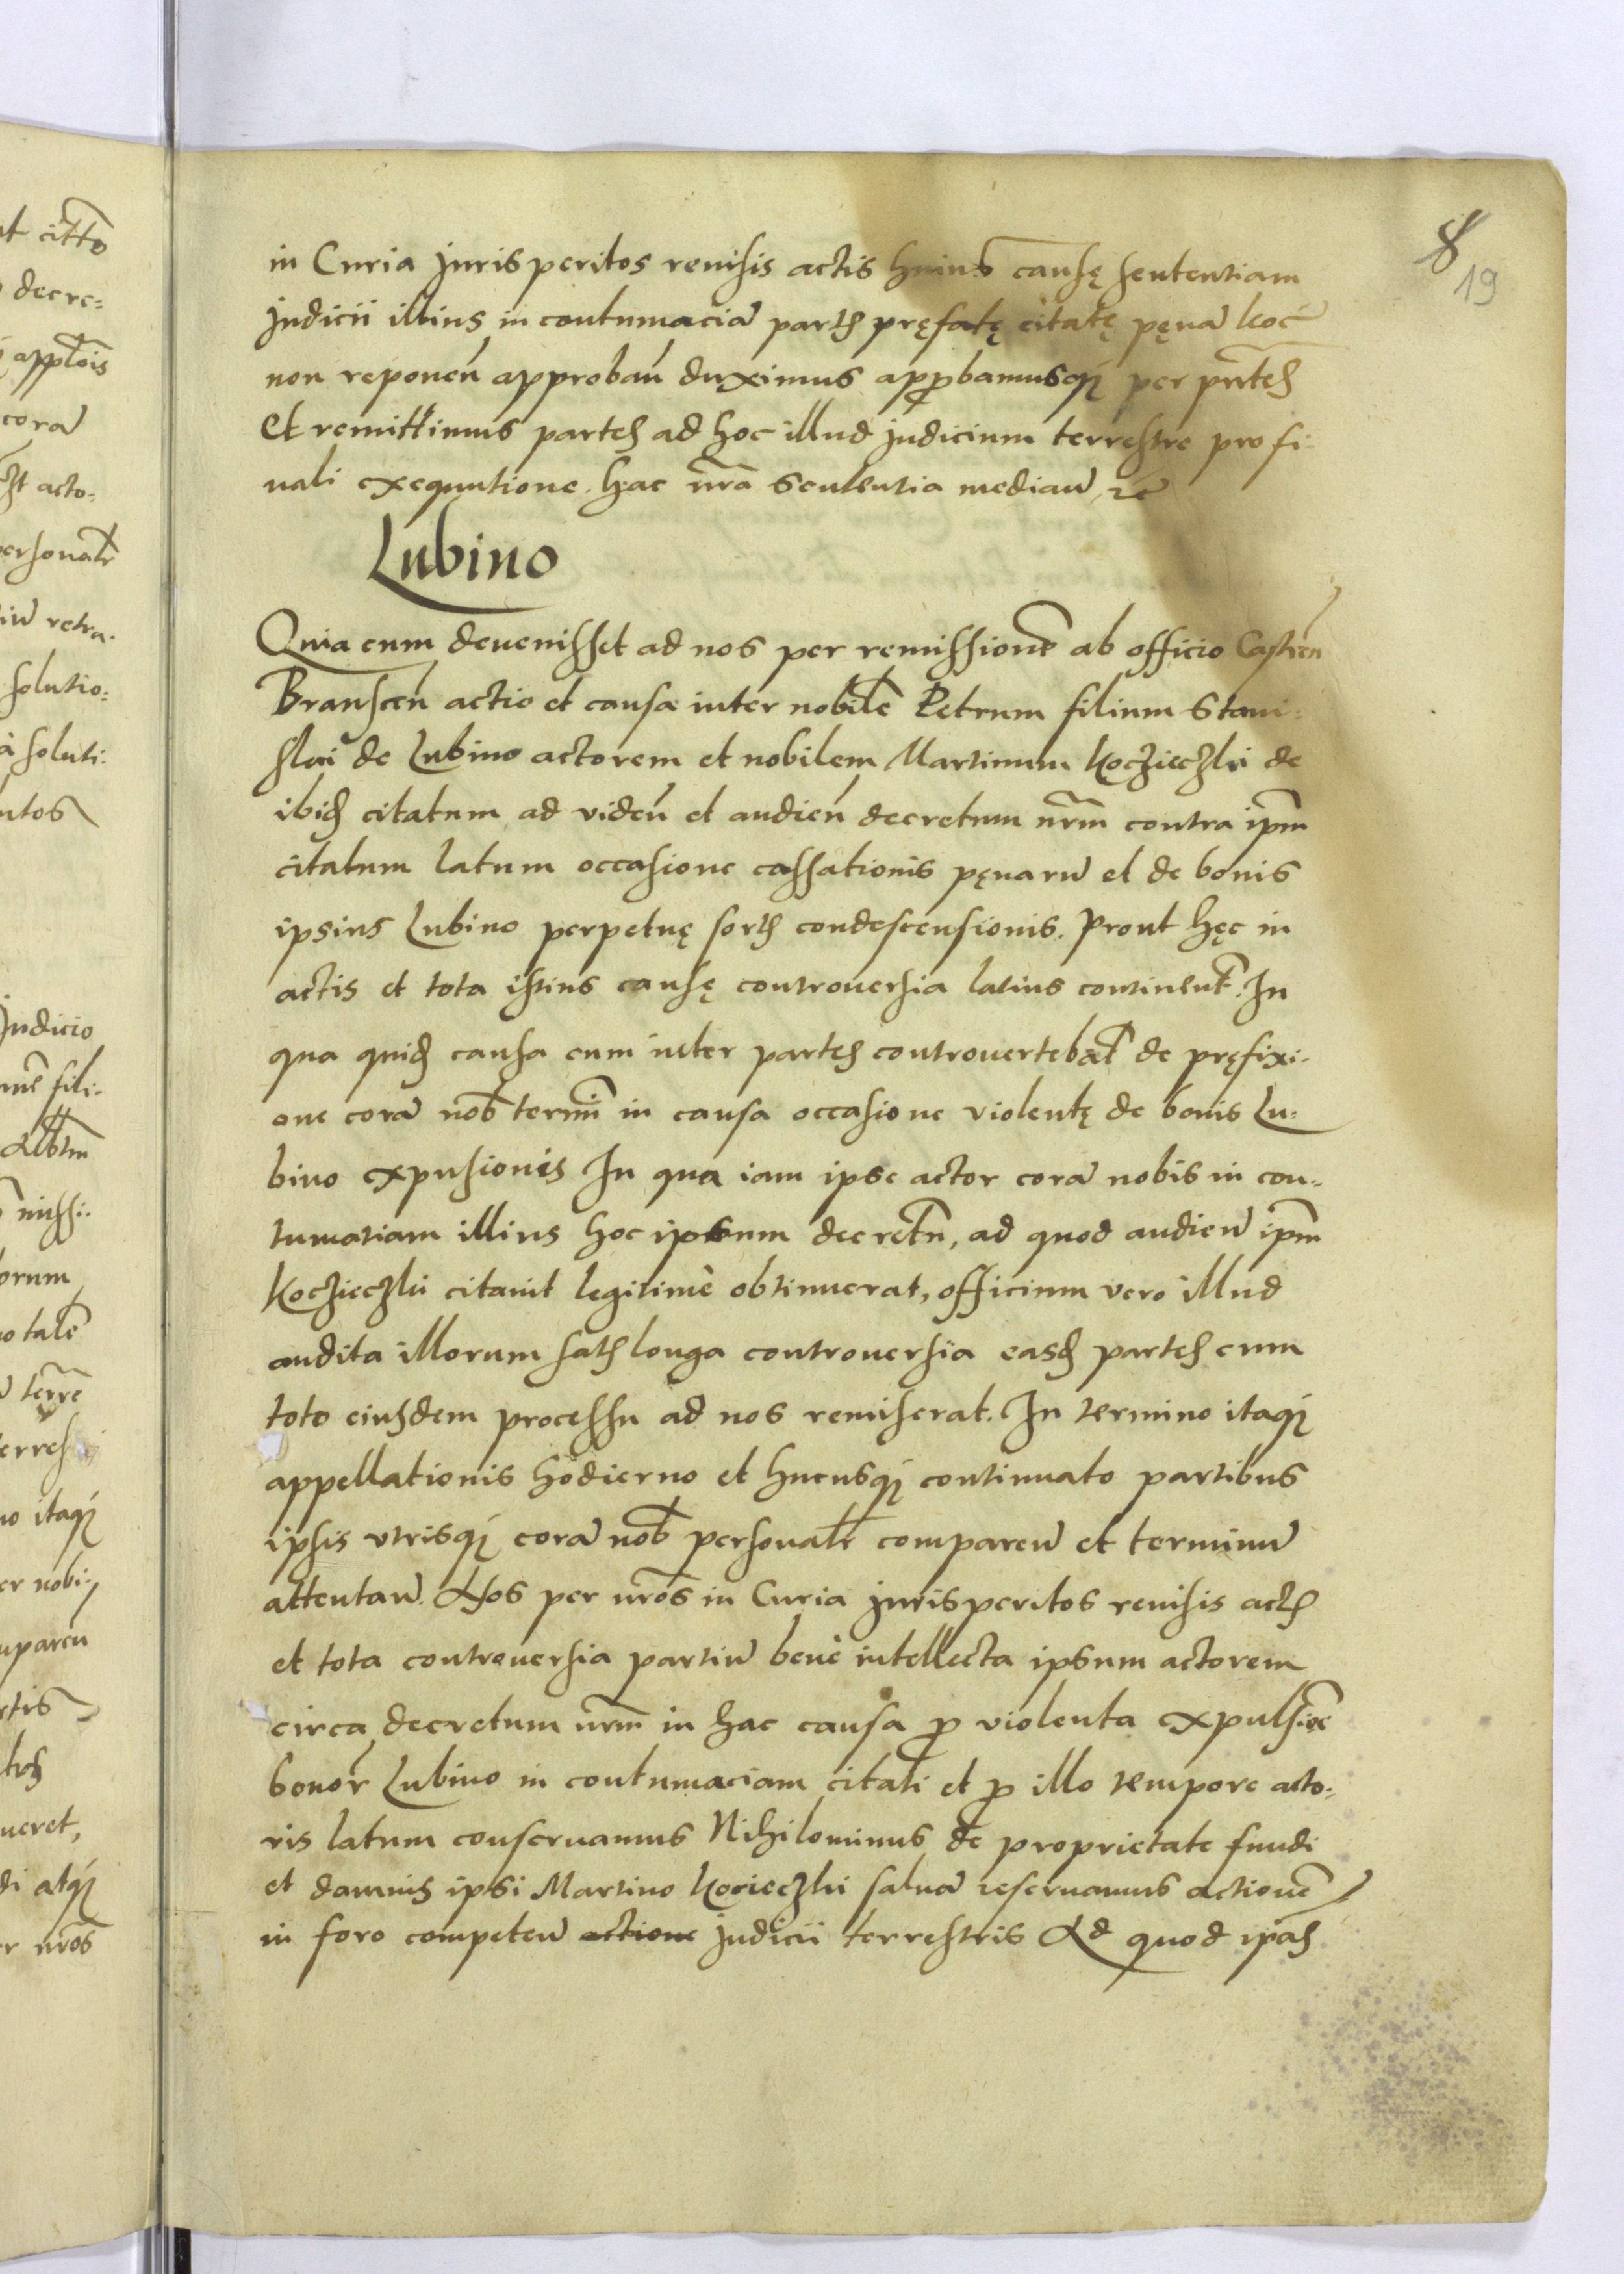 8
19
in Curia Jurisperitos reuisis actis huius causę sententiam
Judicii illius in contumaciā partis pręfatę citatę pęnā koc̄
non reponen̄ approban̄ duximus approbamusq́ per pn̄tes
Et remittimus partes ad hoc illud judicium terrestre pro fi-
nali exequutione. hac nr̄a Sententia median̄ etc̄
Lubino
Quia cum deuenisset ad nos per remissionē ab officio Castren̄
Branscen̄ actio et causa inter nobilē Petrum filium Stani-
slai de Lubino actorem et nobilem Martinum Koczieczki de
ibid citatum ad viden̄ et audien̄ decretum nr̄m contra ipm̄
citatum latum occasione cassationis pęnarū et de bonis
ipsius Lubino perpetuę sortis condescensionis. Prout hęc in
actis et tota istius causę controuersia latius continent̄. In
qua quid causa cum inter partes controuertebat̄ de pręfixi-
one corā nob̄ termi̅ in causa occasione violentę de bonis Lu-
bino expusionis In qua iam ipse actor corā nobis in con-
tumatiam illius hoc ipsum decretn̄, ad quod audien̄ ipm̄
Koczieczki citauit legitimè obtinuerat, officium vero illud
audita illorum satis longa controuersia easd partes cum
toto eiusdem processu ad nos remiserat. In termino itaq́
appellationis hodierno et hucusq́ continuato partibus
ipsis vtrisq́ corā nob̄ personalr̄ comparen̄ et terminū
attentan̄. Nos per nr̄os in Curia jurisperitos reuisis actis
et tota controuersia partiū benè intellecta ipsum actorem
circa decretum nr̄m in hac causa ꝓ violenta expulsiōe
bonor̄ Lubino in contumaciam citati et ꝓ illo tempore acto-
ris latum conseruamus Nihilominus de proprietate fundi
et damnis ipsi Martino Kocieczki saluā reseruamus actionē
in foro competen̄ actione judicii terrestris Ad quod ipas